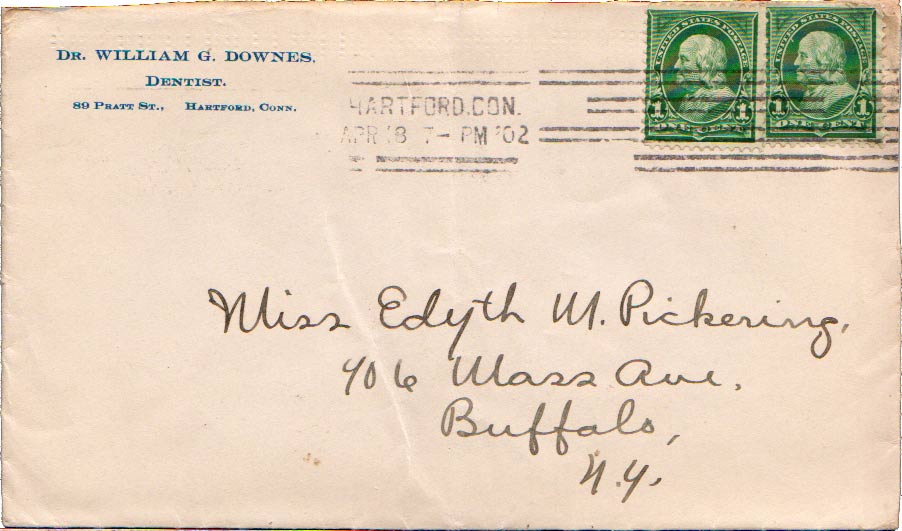 DR. WILLIAM G. DOWNES,
DENTIST.
89 PRATT ST., HARTFORD, CONN.
HARTFORD.CON.
APR 18 7- PM '02
UNITED STATES POSTAGE
1 1
ONE CENT
UNITED STATES POSTAGE
1 1
ONE CENT
Miss Edyth M. Pickering,
406 Mass Ave,
Buffalo,
N.Y.